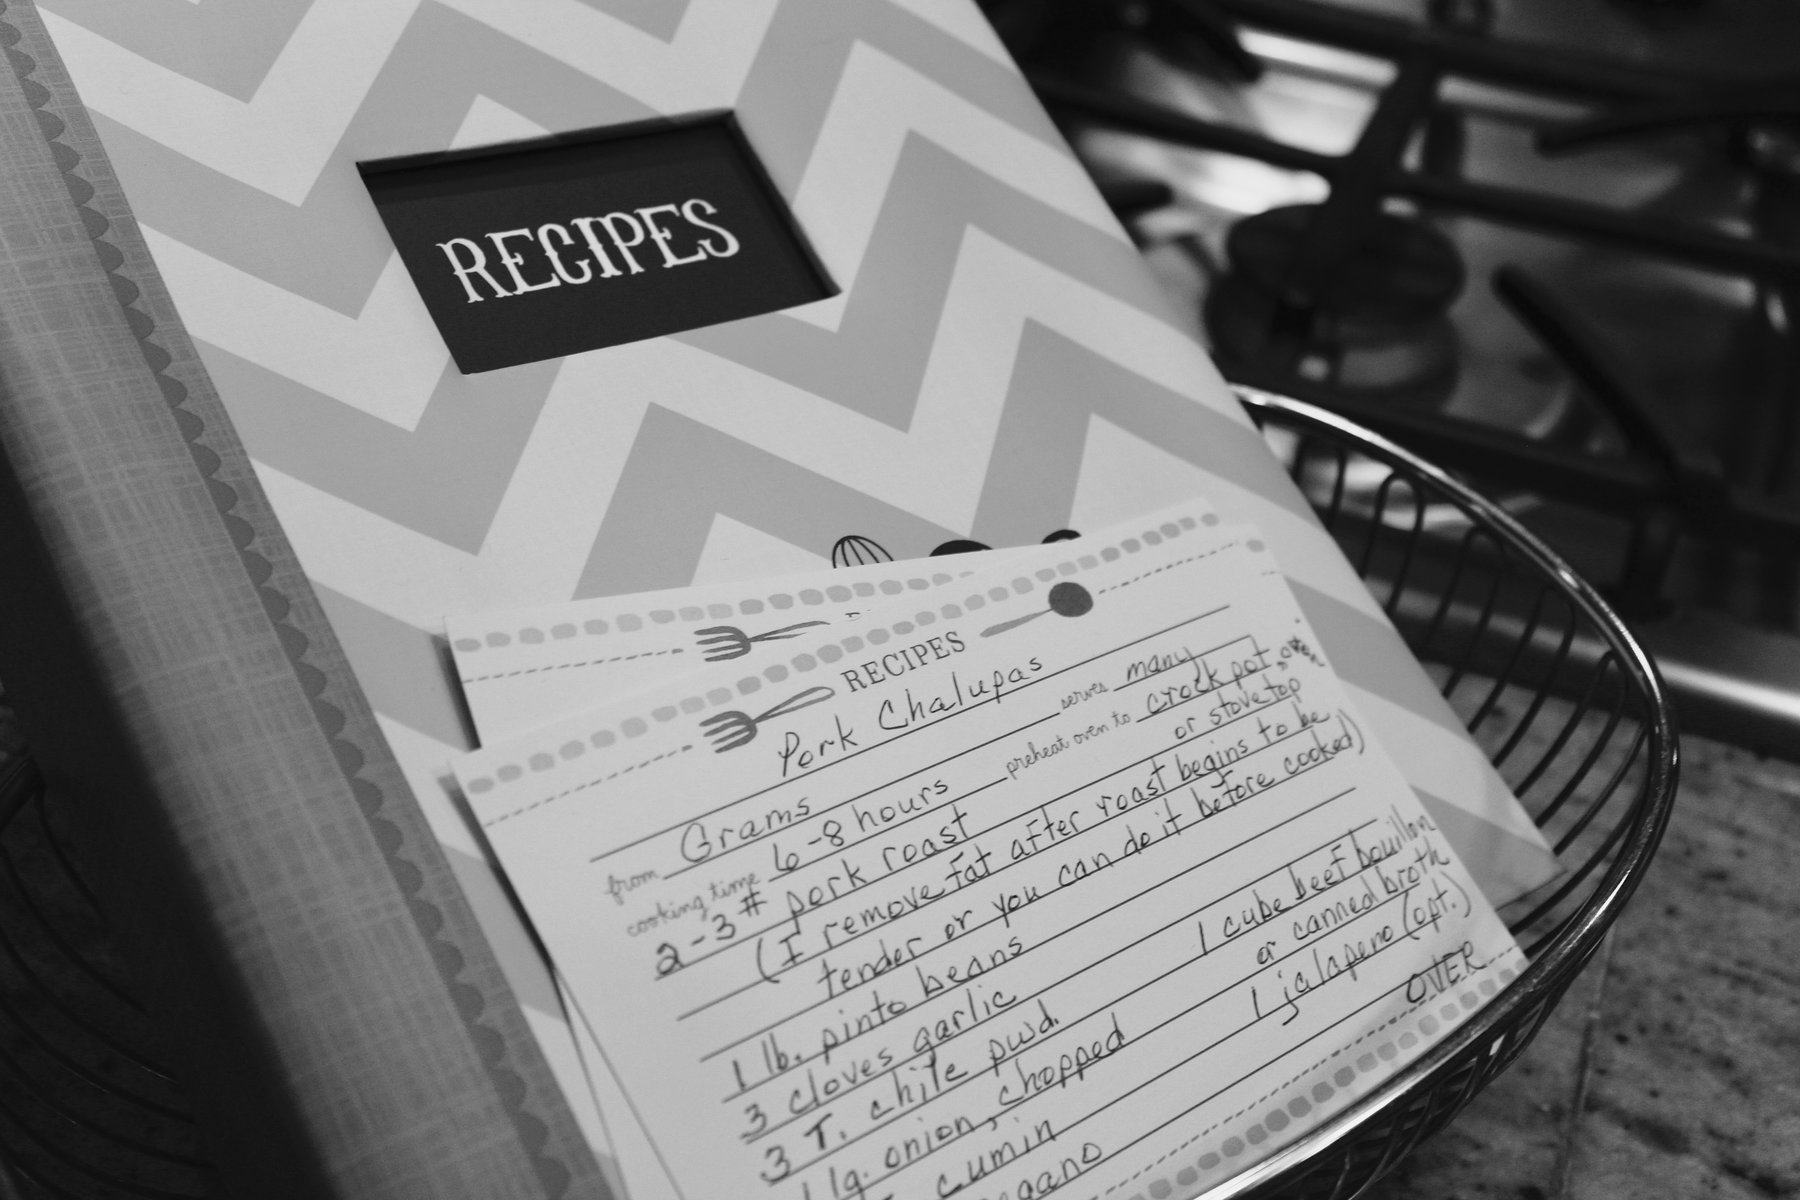 RECIPES
RECIPES
Pork Chalupas
serves many
from Grams
preheat oven to crock pot, oven
or stovetop
cooking time 6-8 hours
2-3 # pork roast
(I remove fat after roast begins to be
tender or you can do it before cooked)
1 lb. pinto beans
3 cloves garlic
1 cube beef bouillon
3 T. chile pwd.
or canned broth
1 lg. onion, chopped
1 jalapeno (opt.)
cumin
OVER